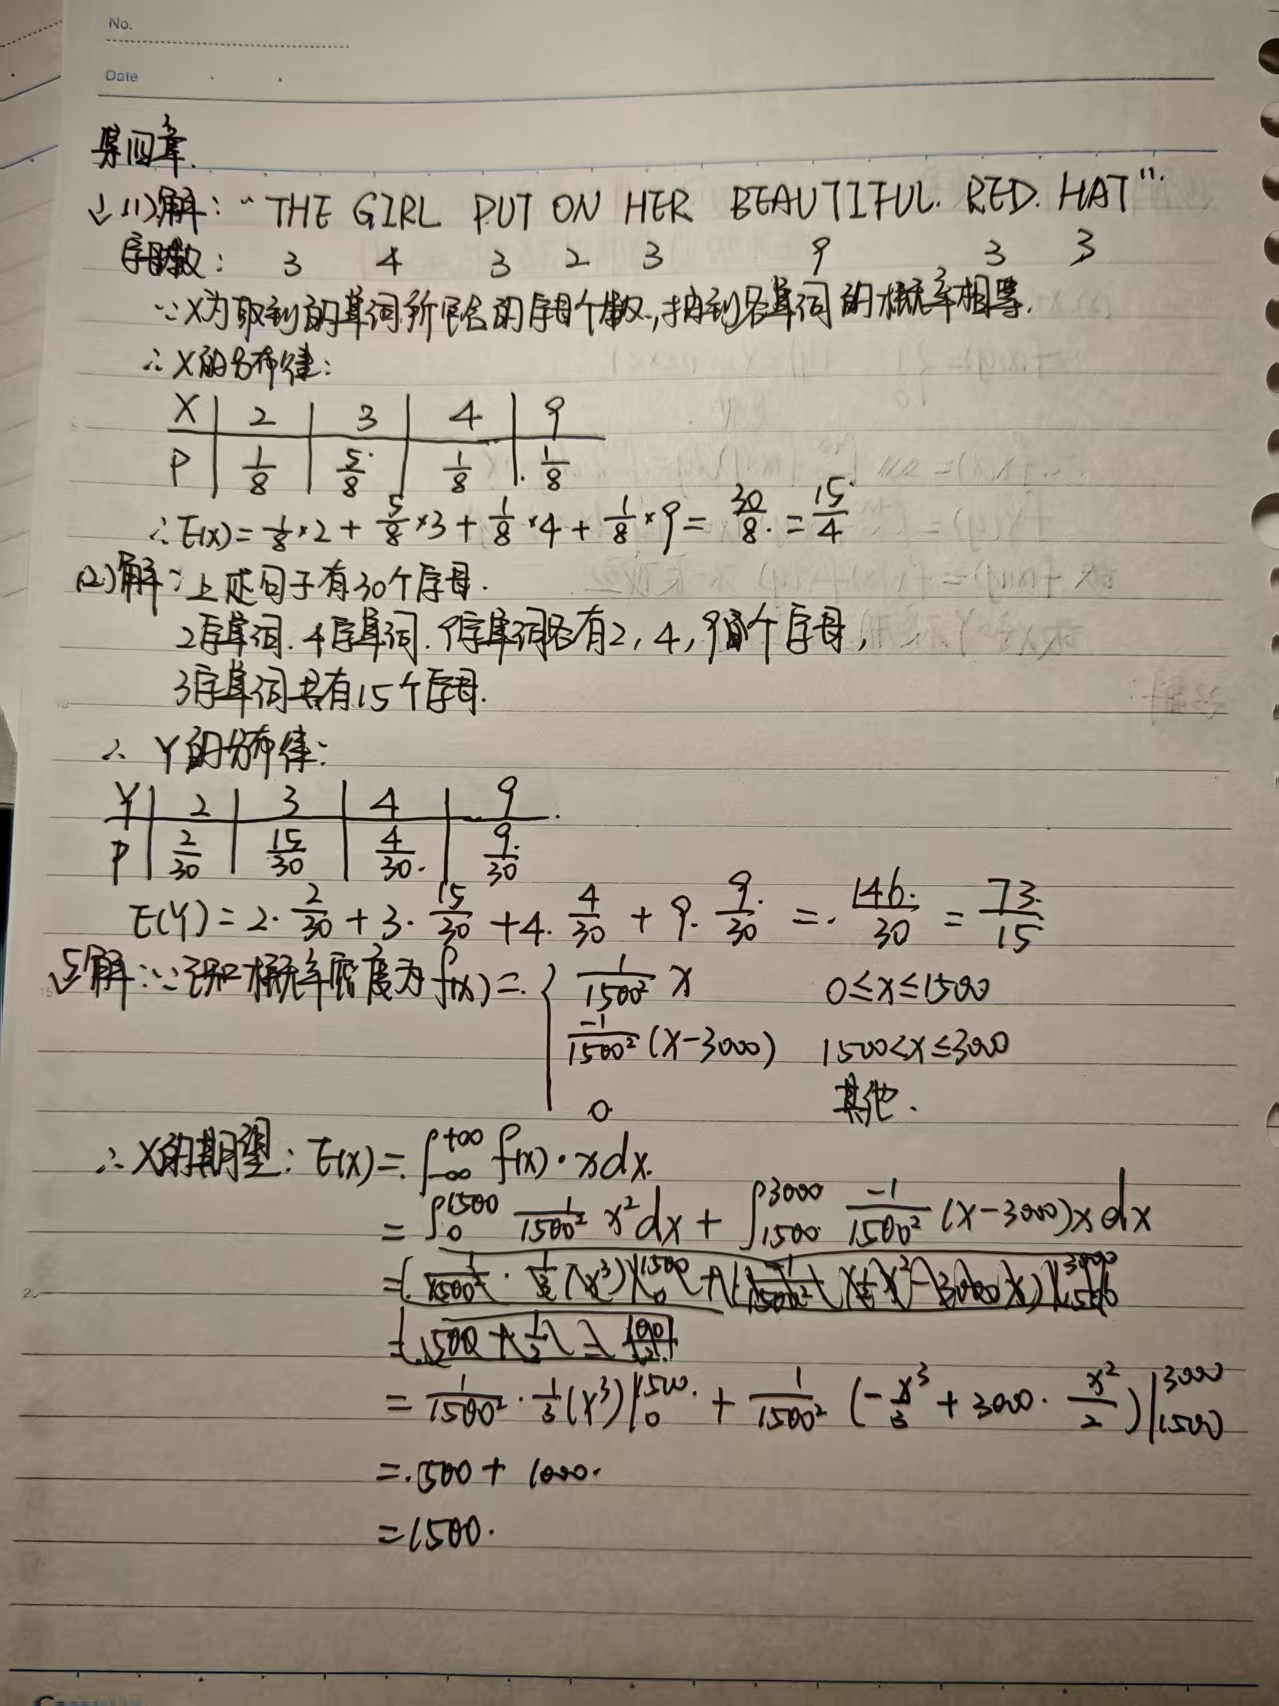 No.
Date
第四章.
1.(1)解: "THE GIRL PUT ON HER BEAUTIFUL. RED. HAT".
字母数: 3 4 3 2 3 9 3 3
∵X为取到的单词所包含的字母个数,抽到各单词的概率相等.
∴X的分布律:
X 2 3 4 9
P 1/8 5/8 1/8 1/8
∴E(X)=1/8×2+5/8×3+1/8×4+1/8×9=30/8=15/4
(2)解: 上述句子有30个字母.
2字单词.4字单词.9字单词各有2,4,9个字母,
3字单词共有15个字母.
∴ Y的分布律:
Y 2 3 4 9
P 2/30 15/30 4/30 9/30
E(Y)=2·2/30+3·15/30+4·4/30+9·9/30=146/30=73/15
5解:∵已知概率密度为f(x)={ 1/1500² x 0≤x≤1500
-1/1500² (x-3000) 1500<x≤3000
0 其他.
∴X的期望: E(X)=∫_{-∞}^{+∞} f(x)·xdx.
=∫_0^{1500} 1/1500² x²dx+∫_{1500}^{3000} -1/1500² (x-3000)xdx
=1/1500²·1/3(x³)|_0^{1500}+1/1500² (-x³/3+3000·x²/2)|_{1500}^{3000}
=500+1000.
=1500.
20